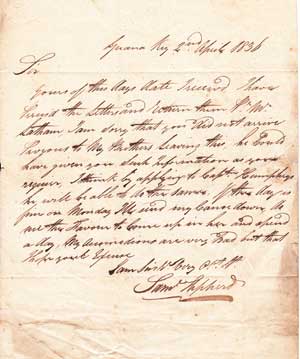 Guana Key 2nd April 1836
Sir
Yours of this days date I received I have
the Letters and return them Mr
Latham I am Sory that you did not arrive
My Brothers leaving this he Could
have given you Such Information as you
require, I think by applying to Capt Humphreys
he will be able to the same. If the day is
on Monday Ile send my Canoe down do
me the favour to Come up in her and spend
a day. My Accomodations are very Bad but that
Hope you'l Excuse
I am Sir Yr Very
Saml Shepherd